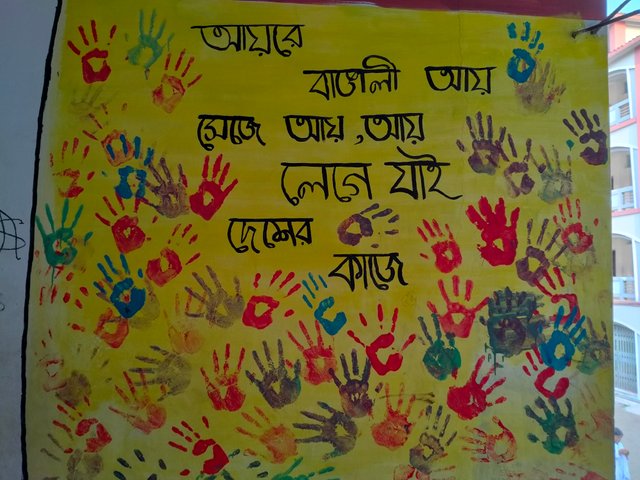 আয়রে
বাঙালী আয়
সেজে আয়, আয়
লেগে যাই
দেশের
কাজে